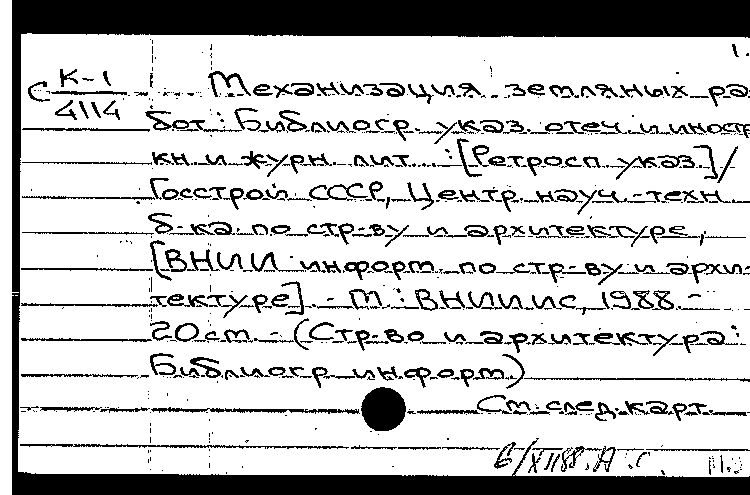 1.
С К-1
4114
Механизация земляных ра-
бот : Библиогр. указ. отеч. и иностр.
кн и журн. лит... : [Ретросп указ.] /
Госстрой СССР, Центр. науч.-техн.
б-ка по стр-ву и архитектуре,
[ВНИИ информ. по стр-ву и архи-
тектуре]. - М : ВНИИИС, 1988. -
20 см. - (Стр-во и архитектура :
Библиогр информ.)
См. след. карт.
6/XII88. А.С.